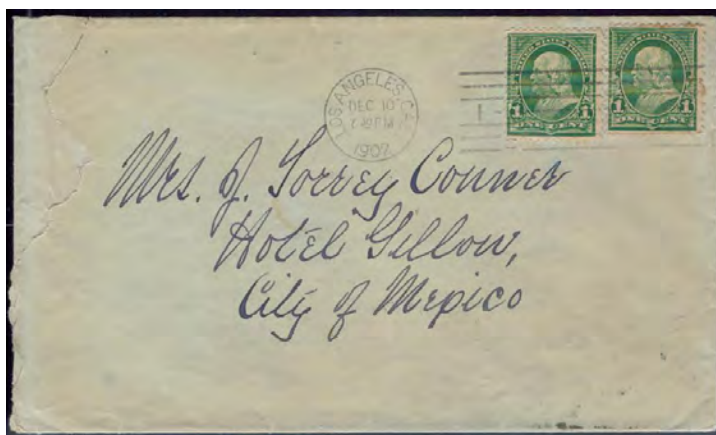 LOS ANGELES, CAL.
DEC 10
1902
1 ONE CENT 1
1 ONE CENT 1
Mrs. J. Torrey Conner
Hotel Gillow,
City of Mexico